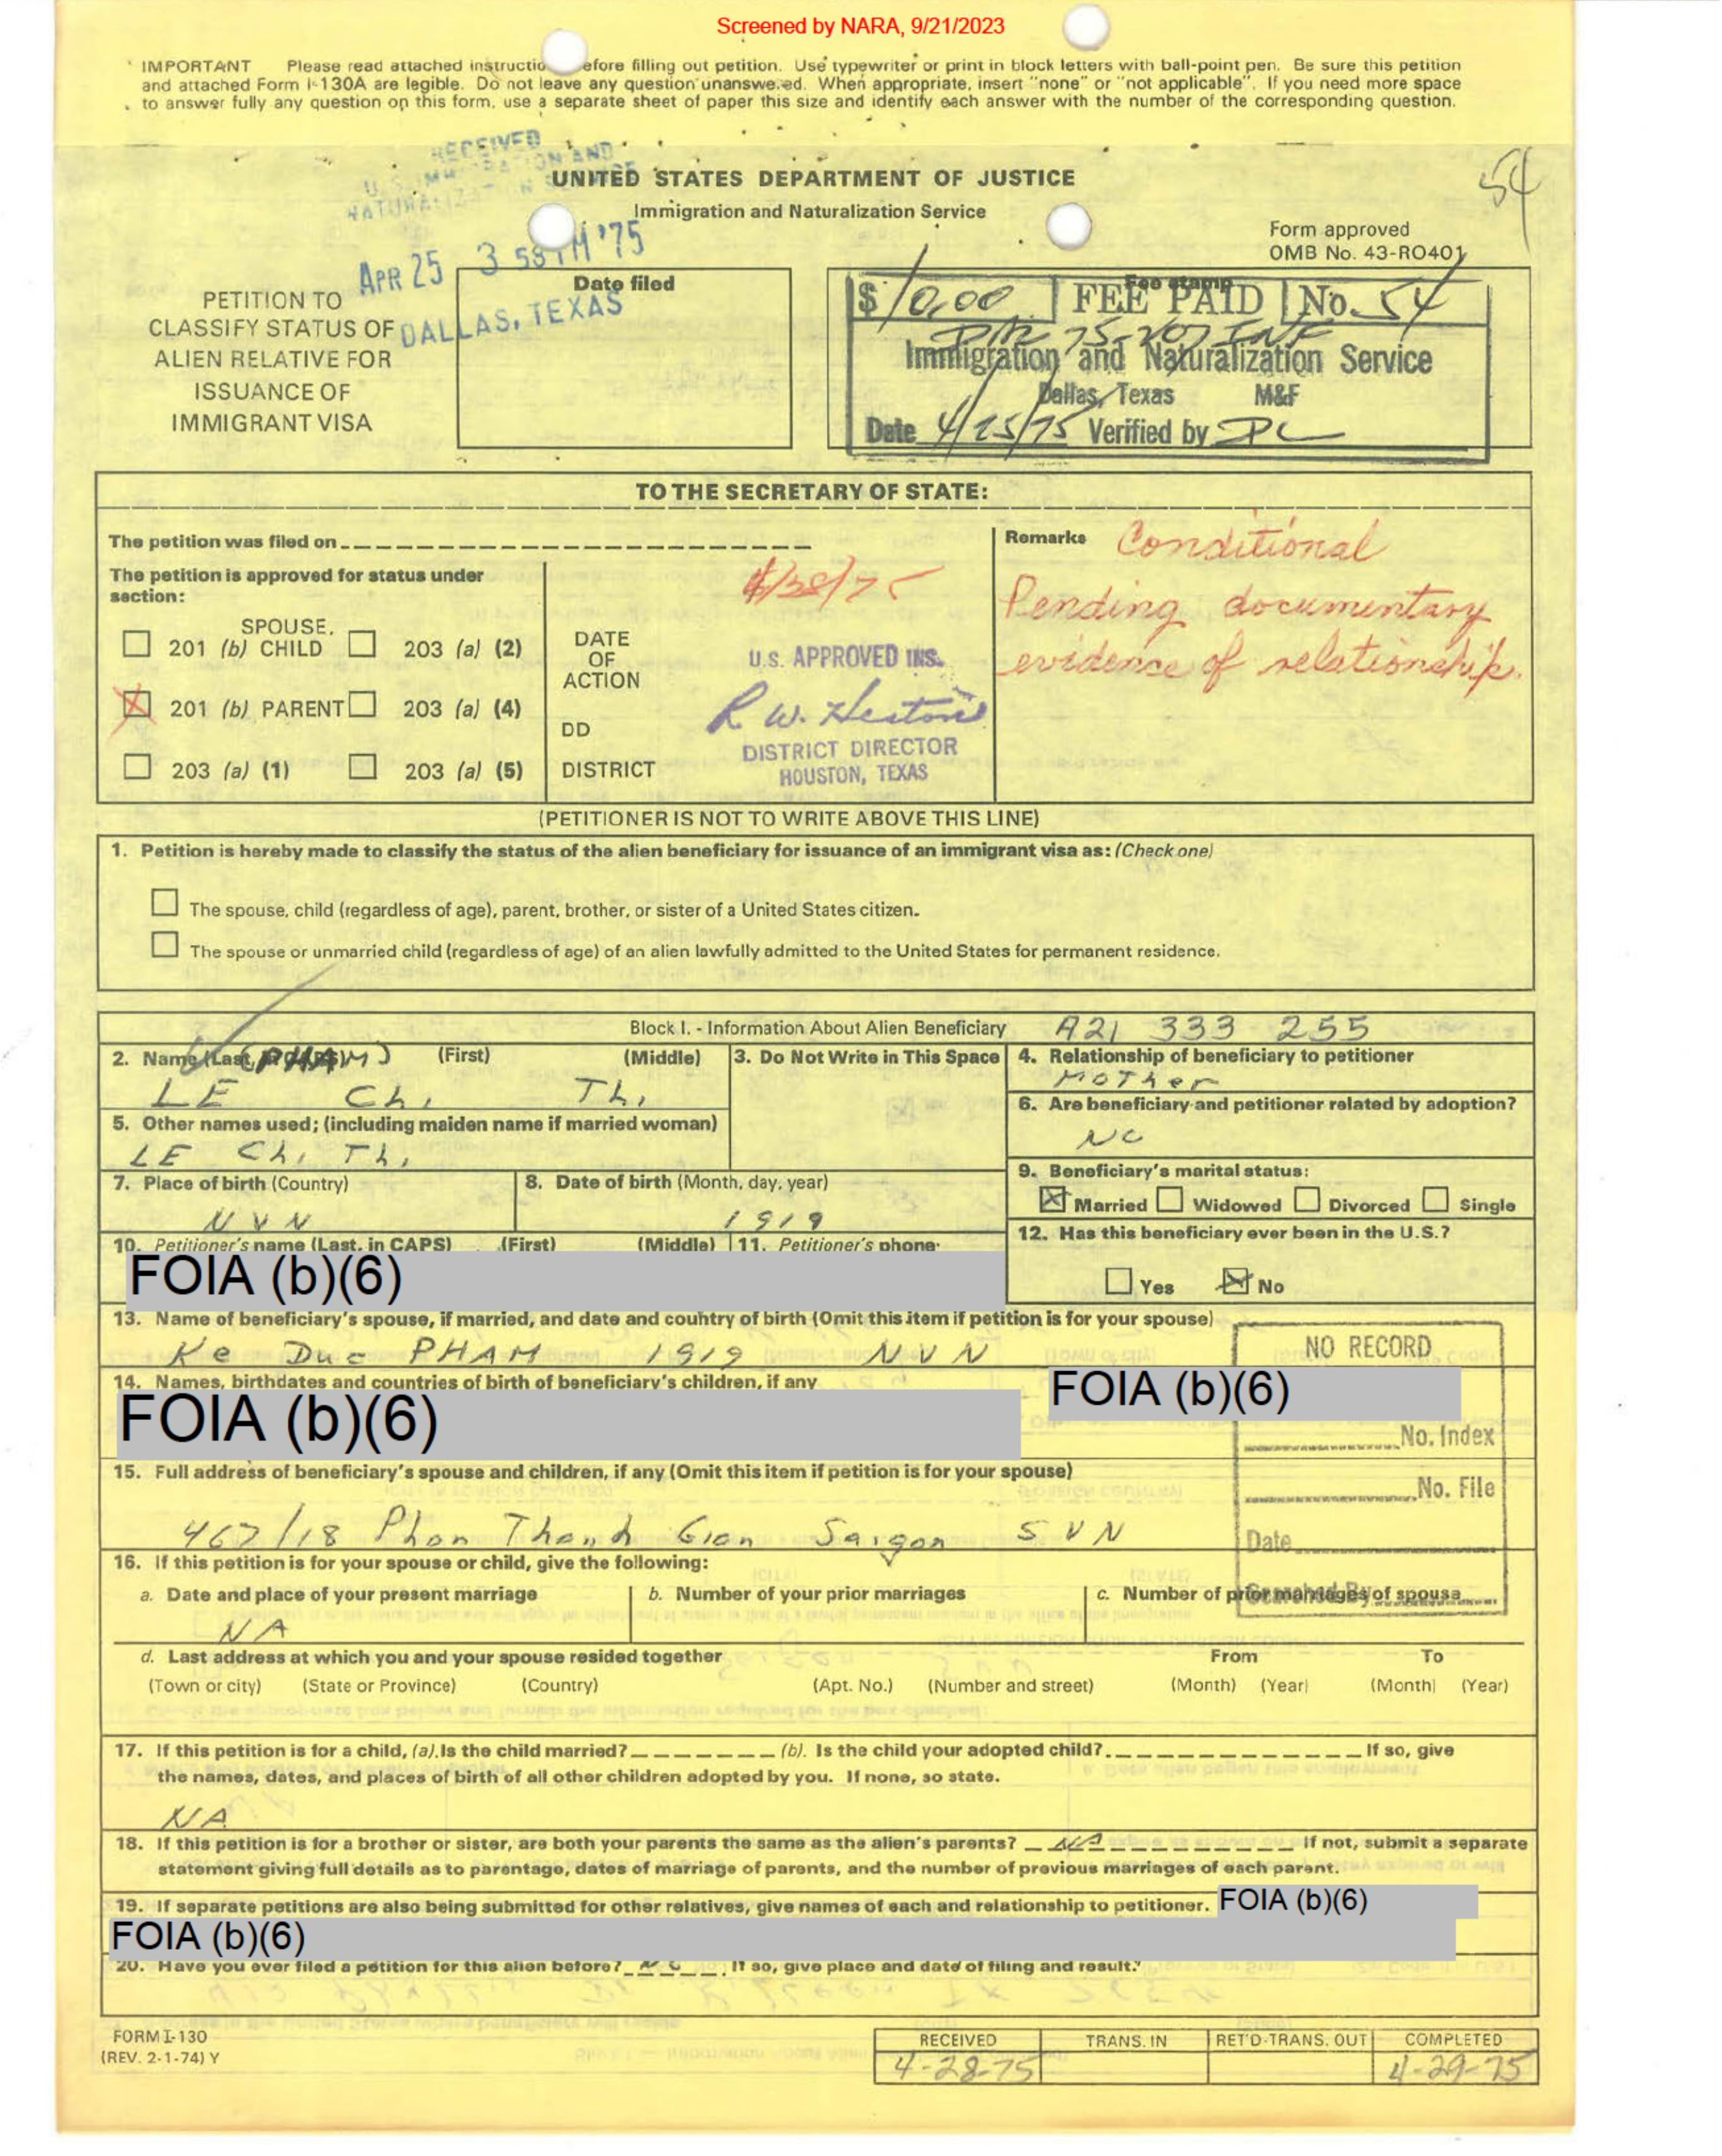 Screened by NARA, 9/21/2023
IMPORTANT Please read attached instructio efore filling out petition. Use typewriter or print in block letters with ball-point pen. Be sure this petition
and attached Form I-130A are legible. Do not leave any question unanswered. When appropriate, insert "none" or "not applicable". If you need more space
to answer fully any question on this form, use a separate sheet of paper this size and identify each answer with the number of the corresponding question.
RECEIVED
UNITED STATES DEPARTMENT OF JUSTICE
Immigration and Naturalization Service
54
Form approved
OMB No. 43-RO401
APR 25 3 58 PM '75
DALLAS, TEXAS
PETITION TO
CLASSIFY STATUS OF
ALIEN RELATIVE FOR
ISSUANCE OF
IMMIGRANT VISA
Date filed
Fee stamp
$10.00 FEE PAID No. 54
Immigration and Naturalization Service
Dallas, Texas M&F
Date 4/25/75 Verified by
TO THE SECRETARY OF STATE:
The petition was filed on
The petition is approved for status under
section:
SPOUSE,
201 (b) CHILD 203 (a) (2)
201 (b) PARENT 203 (a) (4)
203 (a) (1) 203 (a) (5)
DATE
OF
ACTION
DD
DISTRICT
4/28/75
U.S. APPROVED INS.
R W. Heston
DISTRICT DIRECTOR
HOUSTON, TEXAS
Remarks Conditional
Pending documentary
evidence of relationship.
(PETITIONER IS NOT TO WRITE ABOVE THIS LINE)
1. Petition is hereby made to classify the status of the alien beneficiary for issuance of an immigrant visa as: (Check one)
The spouse, child (regardless of age), parent, brother, or sister of a United States citizen.
The spouse or unmarried child (regardless of age) of an alien lawfully admitted to the United States for permanent residence.
Block I. - Information About Alien Beneficiary A21 333 255
2. Name (Last, (PHAM) (First) (Middle)
LE Chi Thi
3. Do Not Write in This Space
4. Relationship of beneficiary to petitioner
Mother
5. Other names used; (including maiden name if married woman)
LE Chi Thi
6. Are beneficiary and petitioner related by adoption?
NO
7. Place of birth (Country)
NVN
8. Date of birth (Month, day, year)
1919
9. Beneficiary's marital status:
Married Widowed Divorced Single
10. Petitioner's name (Last, in CAPS) (First) (Middle) 11. Petitioner's phone
FOIA (b)(6)
12. Has this beneficiary ever been in the U.S.?
Yes No
13. Name of beneficiary's spouse, if married, and date and country of birth (Omit this item if petition is for your spouse)
Ke Duc PHAM 1919 NVN
14. Names, birthdates and countries of birth of beneficiary's children, if any
FOIA (b)(6)
FOIA (b)(6)
NO RECORD
No. Index
No. File
Date
Searched By
15. Full address of beneficiary's spouse and children, if any (Omit this item if petition is for your spouse)
467/18 Phan Thanh Gian Saigon SVN
16. If this petition is for your spouse or child, give the following:
a. Date and place of your present marriage b. Number of your prior marriages c. Number of prior marriages of spouse
NA
d. Last address at which you and your spouse resided together From To
(Town or city) (State or Province) (Country) (Apt. No.) (Number and street) (Month) (Year) (Month) (Year)
17. If this petition is for a child, (a). Is the child married? (b). Is the child your adopted child?. If so, give
the names, dates, and places of birth of all other children adopted by you. If none, so state.
NA
18. If this petition is for a brother or sister, are both your parents the same as the alien's parents? NA If not, submit a separate
statement giving full details as to parentage, dates of marriage of parents, and the number of previous marriages of each parent.
19. If separate petitions are also being submitted for other relatives, give names of each and relationship to petitioner. FOIA (b)(6)
FOIA (b)(6)
20. Have you ever filed a petition for this alien before? NO If so, give place and date of filing and result.
FORM I-130
(REV. 2-1-74) Y
RECEIVED TRANS. IN RET'D-TRANS. OUT COMPLETED
4-28-75 4-29-75